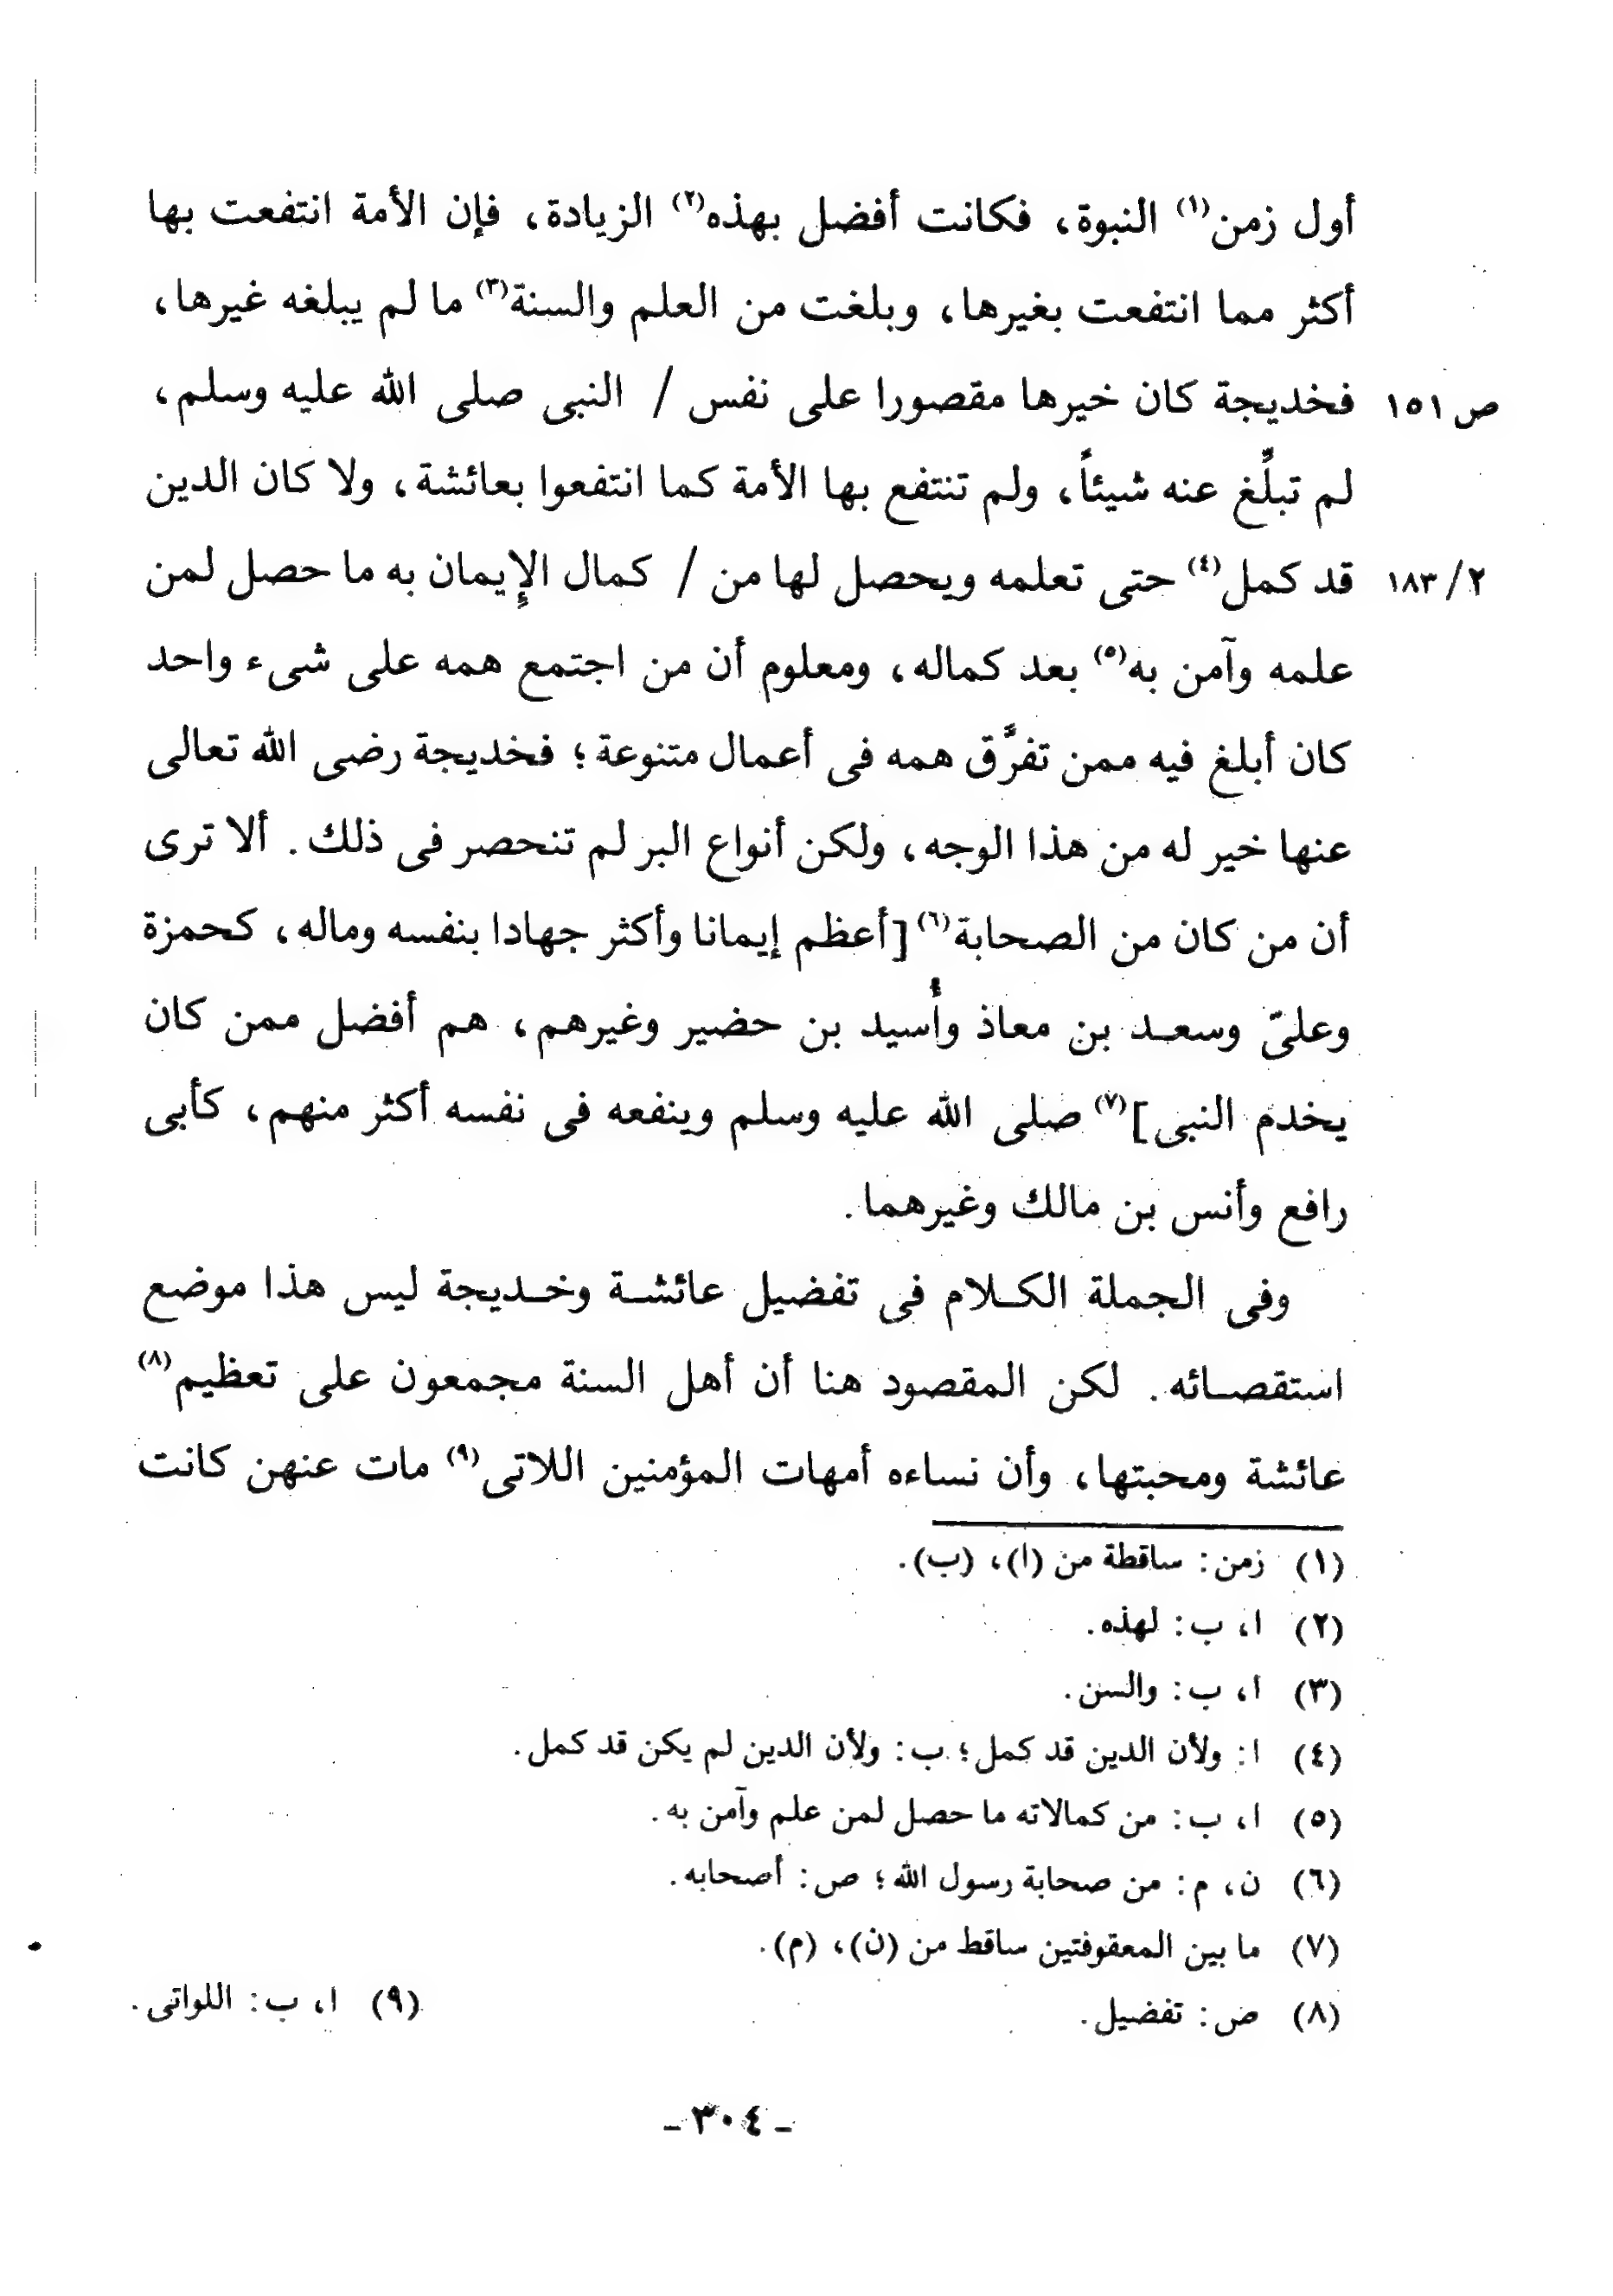 أول زمن(١) النبوة، فكانت أفضل بهذه(٢) الزيادة، فإن الأمة انتفعت بها
أكثر مما انتفعت بغيرها، وبلغت من العلم والسنة(٣) ما لم يبلغه غيرها،
ص ١٥١ فخديجة كان خيرها مقصورا على نفس / النبى صلى الله عليه وسلم،
لم تبلِّغ عنه شيئاً، ولم تنتفع بها الأمة كما انتفعوا بعائشة، ولا كان الدين
٢/ ١٨٣ قد كمل(٤) حتى تعلمه ويحصل لها من / كمال الإِيمان به ما حصل لمن
علمه وآمن به(٥) بعد كماله، ومعلوم أن من اجتمع همه على شىء واحد
كان أبلغ فيه ممن تفرَّق همه فى أعمال متنوعة؛ فخديجة رضى الله تعالى
عنها خير له من هذا الوجه، ولكن أنواع البر لم تنحصر فى ذلك. ألا ترى
أن من كان من الصحابة(٦) [أعظم إيمانا وأكثر جهادا بنفسه وماله، كحمزة
وعلىّ وسعد بن معاذ وأُسيد بن حضير وغيرهم، هم أفضل ممن كان
يخدم النبى](٧) صلى الله عليه وسلم وينفعه فى نفسه أكثر منهم، كأبى
رافع وأنس بن مالك وغيرهما.
وفى الجملة الكلام فى تفضيل عائشة وخديجة ليس هذا موضع
استقصائه. لكن المقصود هنا أن أهل السنة مجمعون على تعظيم(٨)
عائشة ومحبتها، وأن نساءه أمهات المؤمنين اللاتى(٩) مات عنهن كانت
(١) زمن: ساقطة من (ا)، (ب).
(٢) ا، ب: لهذه.
(٣) ا، ب: والسنن.
(٤) ا: ولأن الدين قد كمل؛ ب: ولأن الدين لم يكن قد كمل.
(٥) ا، ب: من كمالاته ما حصل لمن علم وآمن به.
(٦) ن، م: من صحابة رسول الله؛ ص: أصحابه.
(٧) ما بين المعقوفتين ساقط من (ن)، (م).
(٨) ص: تفضيل. (٩) ا، ب: اللواتى.
- ٣٠٤ -